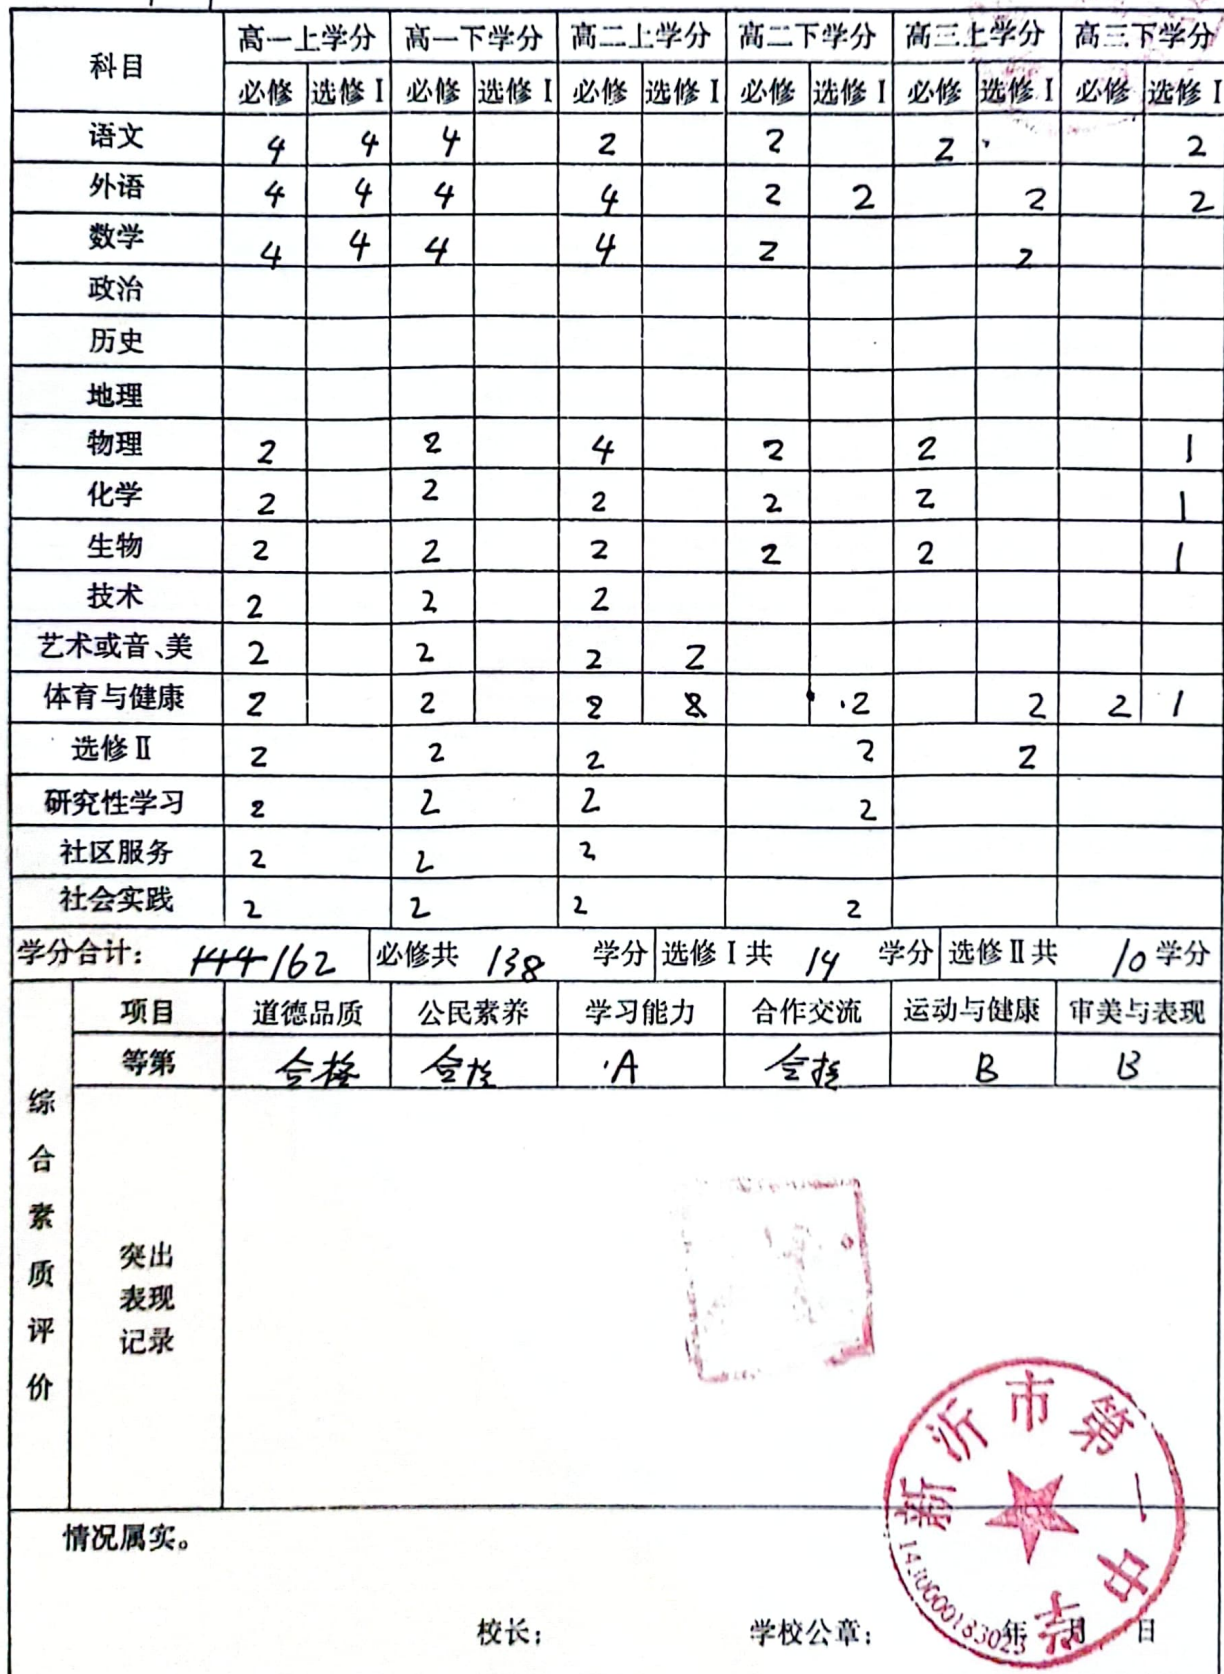 科目 高一上学分 高一下学分 高二上学分 高二下学分 高三上学分 高三下学分
必修 选修Ⅰ 必修 选修Ⅰ 必修 选修Ⅰ 必修 选修Ⅰ 必修 选修Ⅰ 必修 选修Ⅰ
语文 4 4 4 2 2 2 2
外语 4 4 4 4 2 2 2 2
数学 4 4 4 4 2 2
政治
历史
地理
物理 2 2 4 2 2 1
化学 2 2 2 2 2 1
生物 2 2 2 2 2 1
技术 2 2 2
艺术或音、美 2 2 2 2
体育与健康 2 2 2 2 2 2 1
选修Ⅱ 2 2 2 2 2
研究性学习 2 2 2 2
社区服务 2 2 2
社会实践 2 2 2 2
学分合计: 144 162 必修共 138 学分 选修Ⅰ共 14 学分 选修Ⅱ共 10 学分
综合素质评价
项目 道德品质 公民素养 学习能力 合作交流 运动与健康 审美与表现
等第 合格 合格 A 合格 B B
突出
表现
记录
情况属实。
校长: 学校公章: 年 月 日
新沂市第一中学